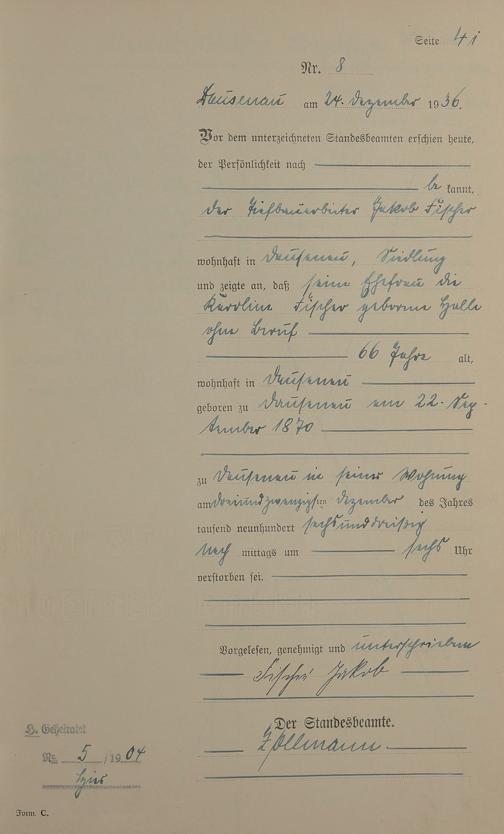 Seite 41
Nr. 8
Dausenau am 24. Dezember 1936.
Vor dem unterzeichneten Standesbeamten erschien heute,
der Persönlichkeit nach
be kannt,
der Tiefbauarbeiter Jakob Fischer
wohnhaft in Dausenau, Siedlung
und zeigte an, daß seine Ehefrau die
Karoline Fischer geborene Halle
ohne Beruf
66 Jahre alt,
wohnhaft in Dausenau
geboren zu Dausenau am 22. Sep-
tember 1870
zu Dausenau in seiner Wohnung
am dreiundzwanzigsten Dezember des Jahres
tausend neunhundert sechsunddreißig
Nach mittags um sechs Uhr
verstorben sei.
Vorgelesen, genehmigt und unterschrieben
Fischer Jakob
Der Standesbeamte.
Zollmann
H. Geheiratet
Nr. 5 /1904
hier
Form. C.